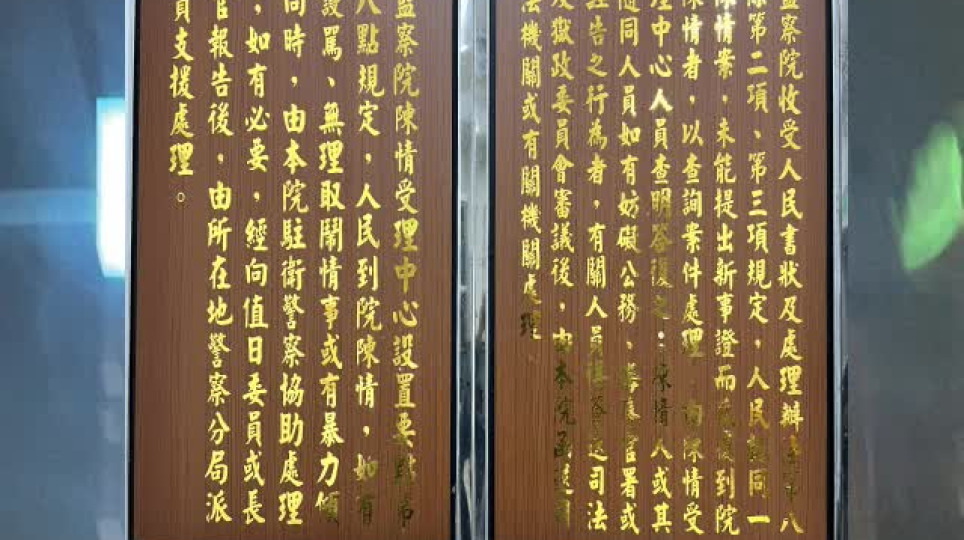 監察院收受人民書狀及處理辦法第八
條第二項、第三項規定，人民對同一
陳情案，未能提出新事證而反復到院
陳情者，以查詢案件處理，由陳情受
理中心人員查明答復之；陳情人或其
隨同人員如有妨礙公務、侮辱官署或
誣告之行為者，有關人員得簽送司法
及獄政委員會審議後，由本院函送司
法機關或有關機關處理。
監察院陳情受理中心設置要點第
八點規定，人民到院陳情，如有
謾罵、無理取鬧情事或有暴力傾
向時，由本院駐衛警察協助處理
，如有必要，經向值日委員或長
官報告後，由所在地警察分局派
員支援處理。